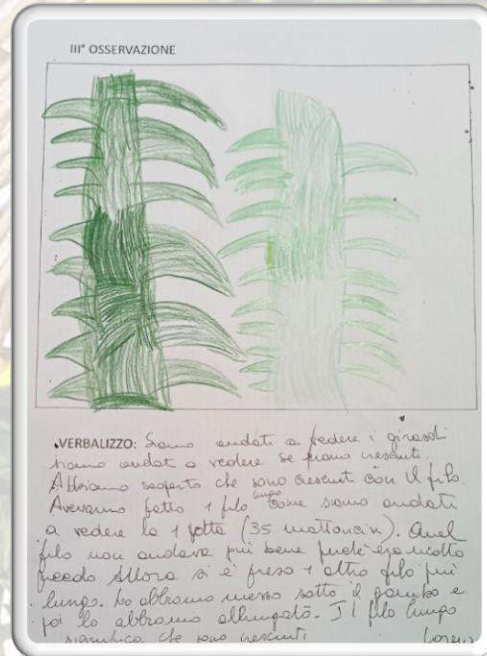 III° OSSERVAZIONE
VERBALIZZO: Siamo andati a vedere i girasoli
siamo andati a vedere se erano cresciuti.
Abbiamo scoperto che sono cresciuti con il filo.
Avevamo fatto 1 filo lungo come siamo andati
a vedere la 1 volta (35 mattoncin). Quel
filo non andava più bene
Allora si è preso 1 altro filo più
lungo. Lo abbiamo messo sotto il gambo e
poi lo abbiamo allungato. Il filo lungo
significa che sono cresciuti